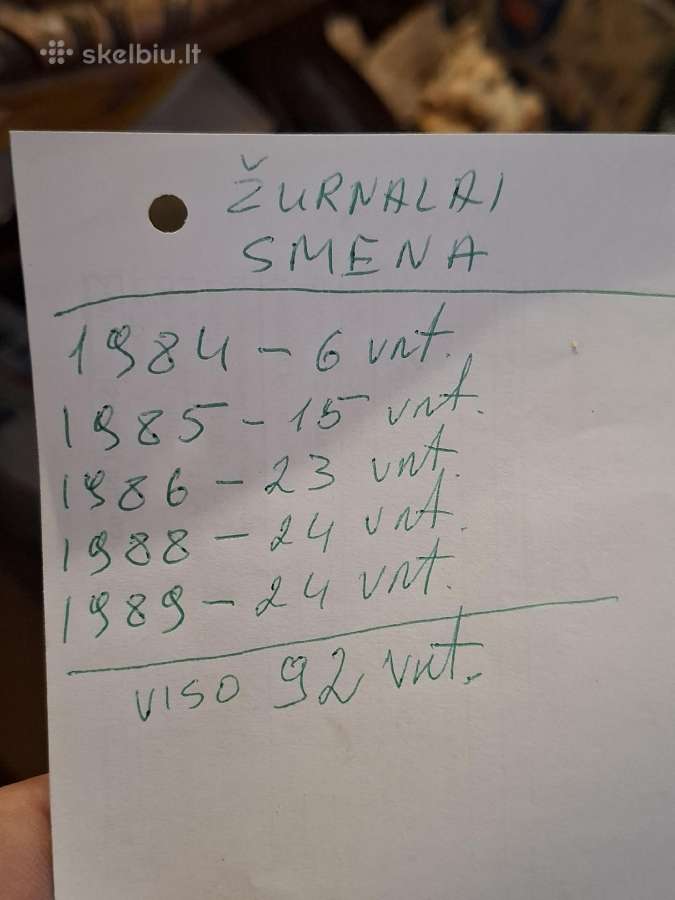 skelbiu.lt
ŽURNALAI
SMENA
1984 - 6 vnt.
1985 - 15 vnt.
1986 - 23 vnt.
1988 - 24 vnt.
1989 - 24 vnt.
VISO 92 vnt.